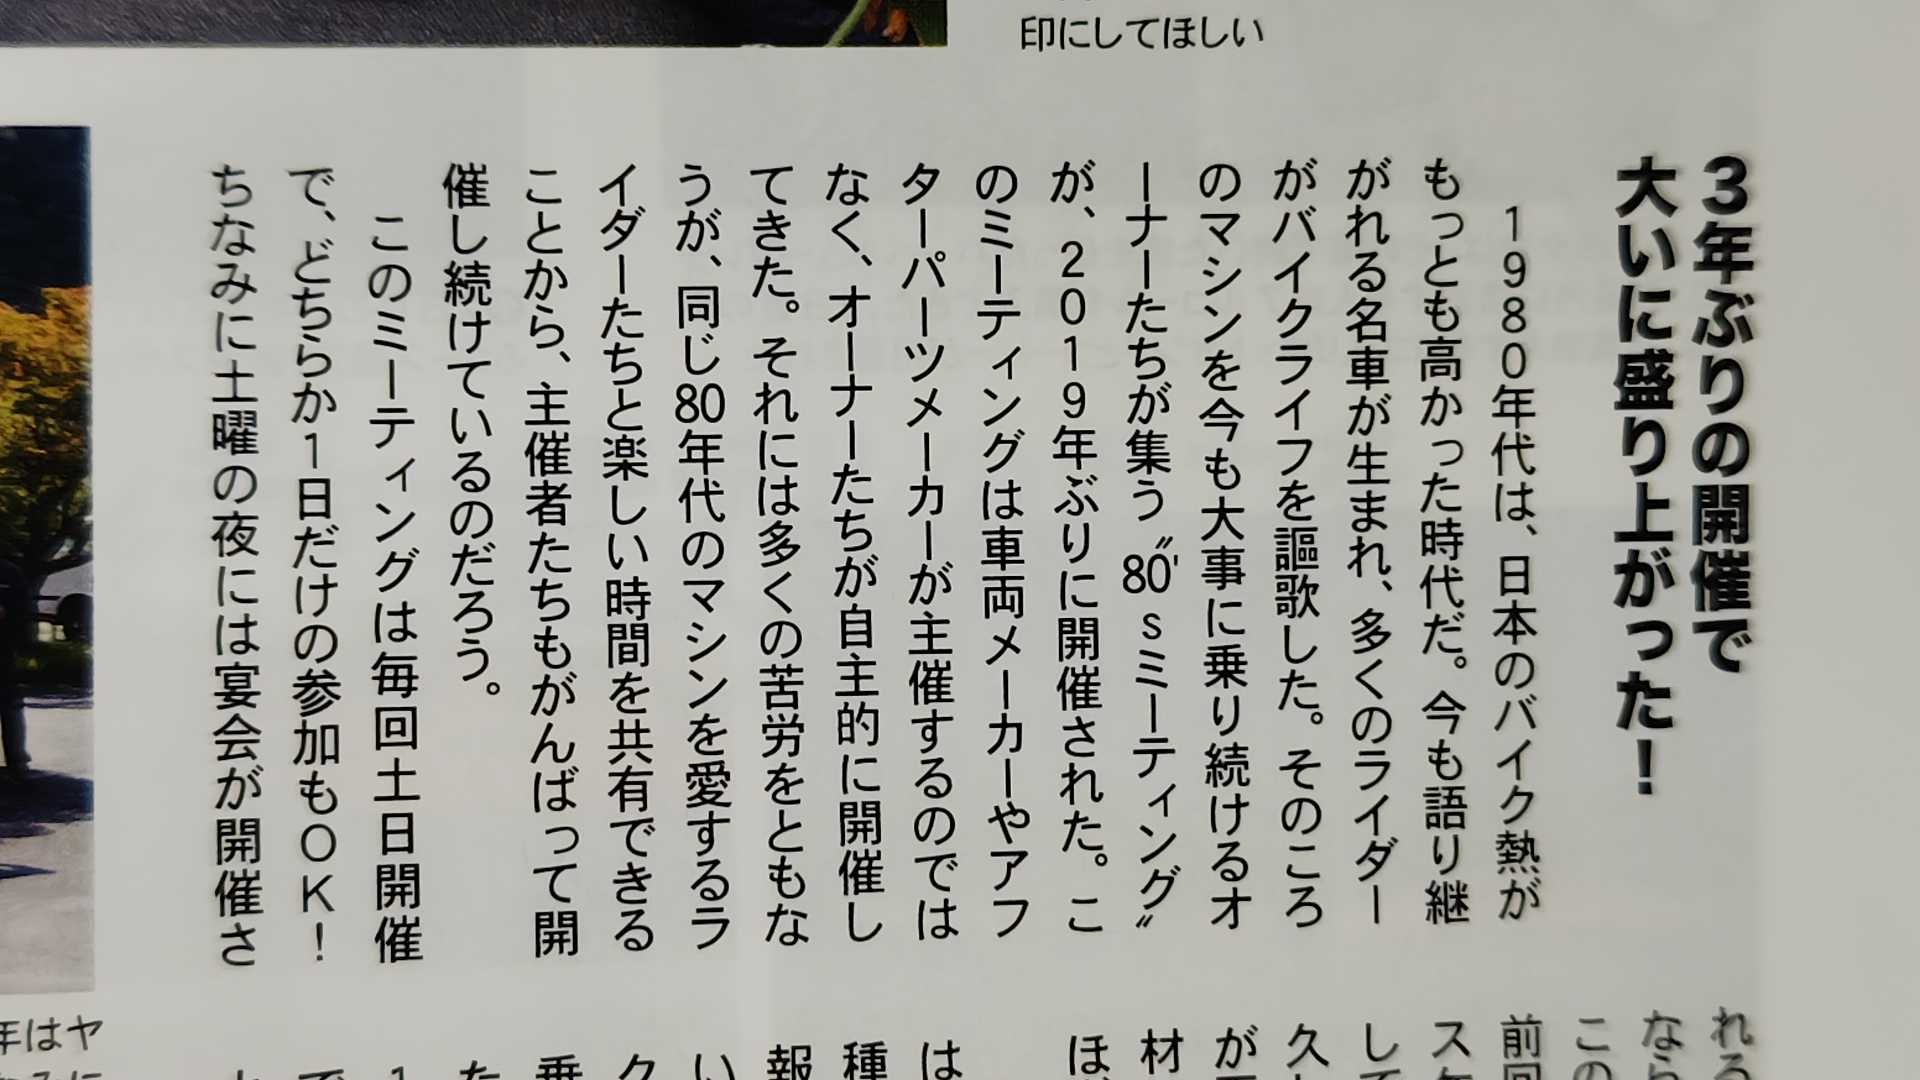 印にしてほしい
3年ぶりの開催で
大いに盛り上がった！
1980年代は、日本のバイク熱が
もっとも高かった時代だ。今も語り継
がれる名車が生まれ、多くのライダー
がバイクライフを謳歌した。そのころ
のマシンを今も大事に乗り続けるオ
ーナーたちが集う〝80'sミーティング〟
が、2019年ぶりに開催された。こ
のミーティングは車両メーカーやアフ
ターパーツメーカーが主催するのでは
なく、オーナーたちが自主的に開催し
てきた。それには多くの苦労をともな
うが、同じ80年代のマシンを愛するラ
イダーたちと楽しい時間を共有できる
ことから、主催者たちもがんばって開
催し続けているのだろう。
このミーティングは毎回土日開催
で、どちらか1日だけの参加もOK！
ちなみに土曜の夜には宴会が開催さ
れる
なら
この
前回
スケ
して
久
が
材
ほ
は
種
報
い
ク
乗
た
1
で
年はヤ